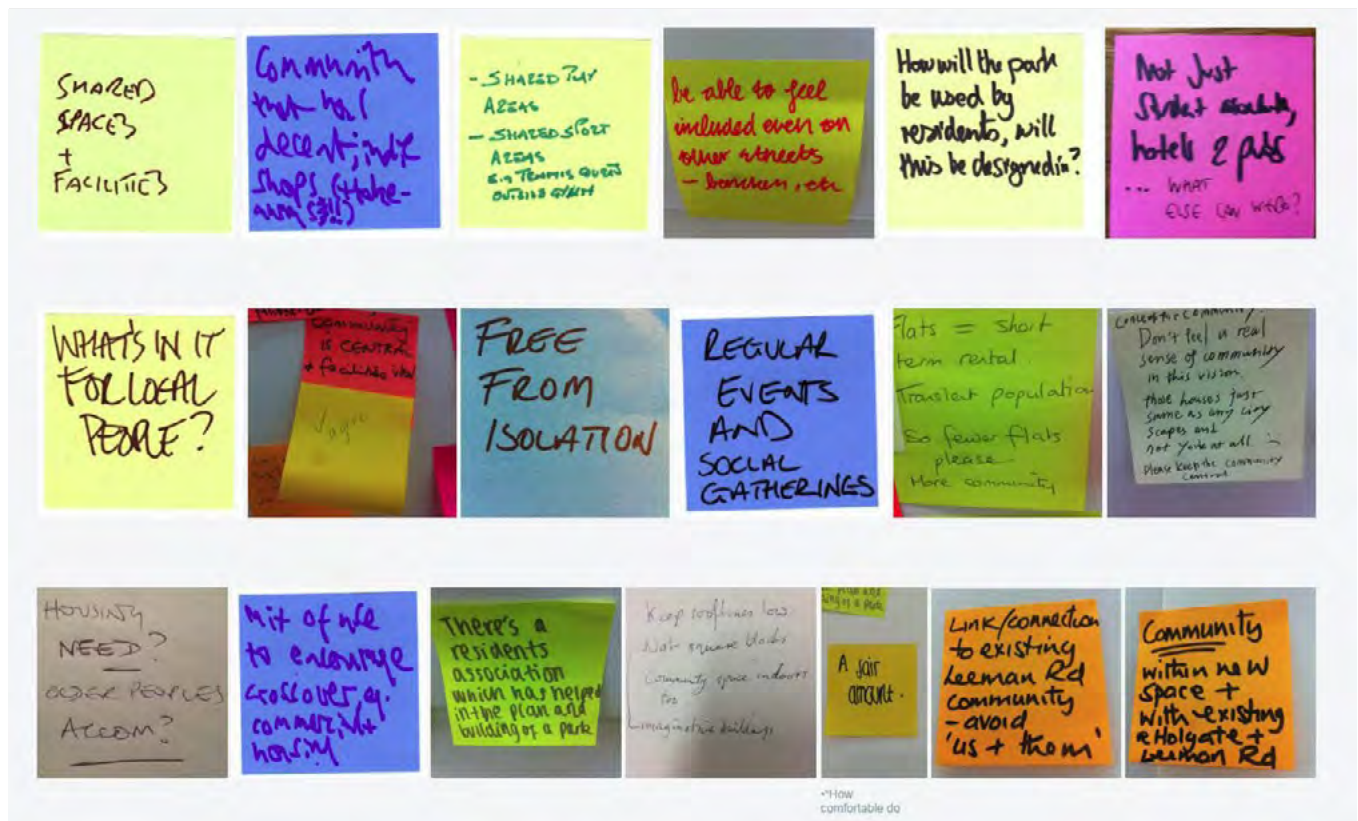 SHARED
SPACES
+
FACILITIES
Community
that has
decent, indie
shops (+ take-
away s?!!)
- SHARED PLAY
AREAS
- SHARED SPORT
AREAS
e.g TENNIS
OUTSIDE GYM
be able to feel
included even on
other streets
- , etc
How will the park
be used by
residents, will
this be designed in?
Not Just
Student
hotels & pubs
... WHAT
ELSE CAN WE DO?
WHAT'S IN IT
FOR LOCAL
PEOPLE?
COMMUNITY
IS CENTRAL
+ facilities
Vague
FREE
FROM
ISOLATION
REGULAR
EVENTS
AND
SOCIAL
GATHERINGS
Flats = short
term rental.
Transient population
So fewer flats
please
More community
Don't feel a real
sense of community
in this vision.
those houses just
same as any city
scapes and
not York at all
Please keep the community
central
HOUSING
NEED?
OLDER PEOPLES
ACCOM?
Mix of use
to encourage
crossover, eg.
commercial +
housing
There's a
residents
association
which has helped
in the plan and
building of a park
Keep rooflines low.
Not square blocks
Community space indoors
too
Imaginative buildings
building of a park
A fair
amount.
Link/connection
to existing
Leeman Rd
community
- avoid
'us + them'
Community
within new
space +
with existing
Holgate +
Leeman Rd
•"How
comfortable do